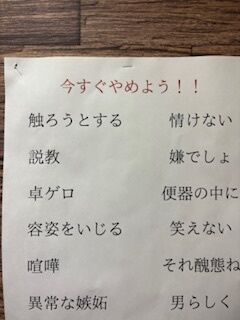 今すぐやめよう！！
触ろうとする　情けない
説教　嫌でしょ
卓ゲロ　便器の中に
容姿をいじる　笑えない
喧嘩　それ醜態ね
異常な嫉妬　男らしく